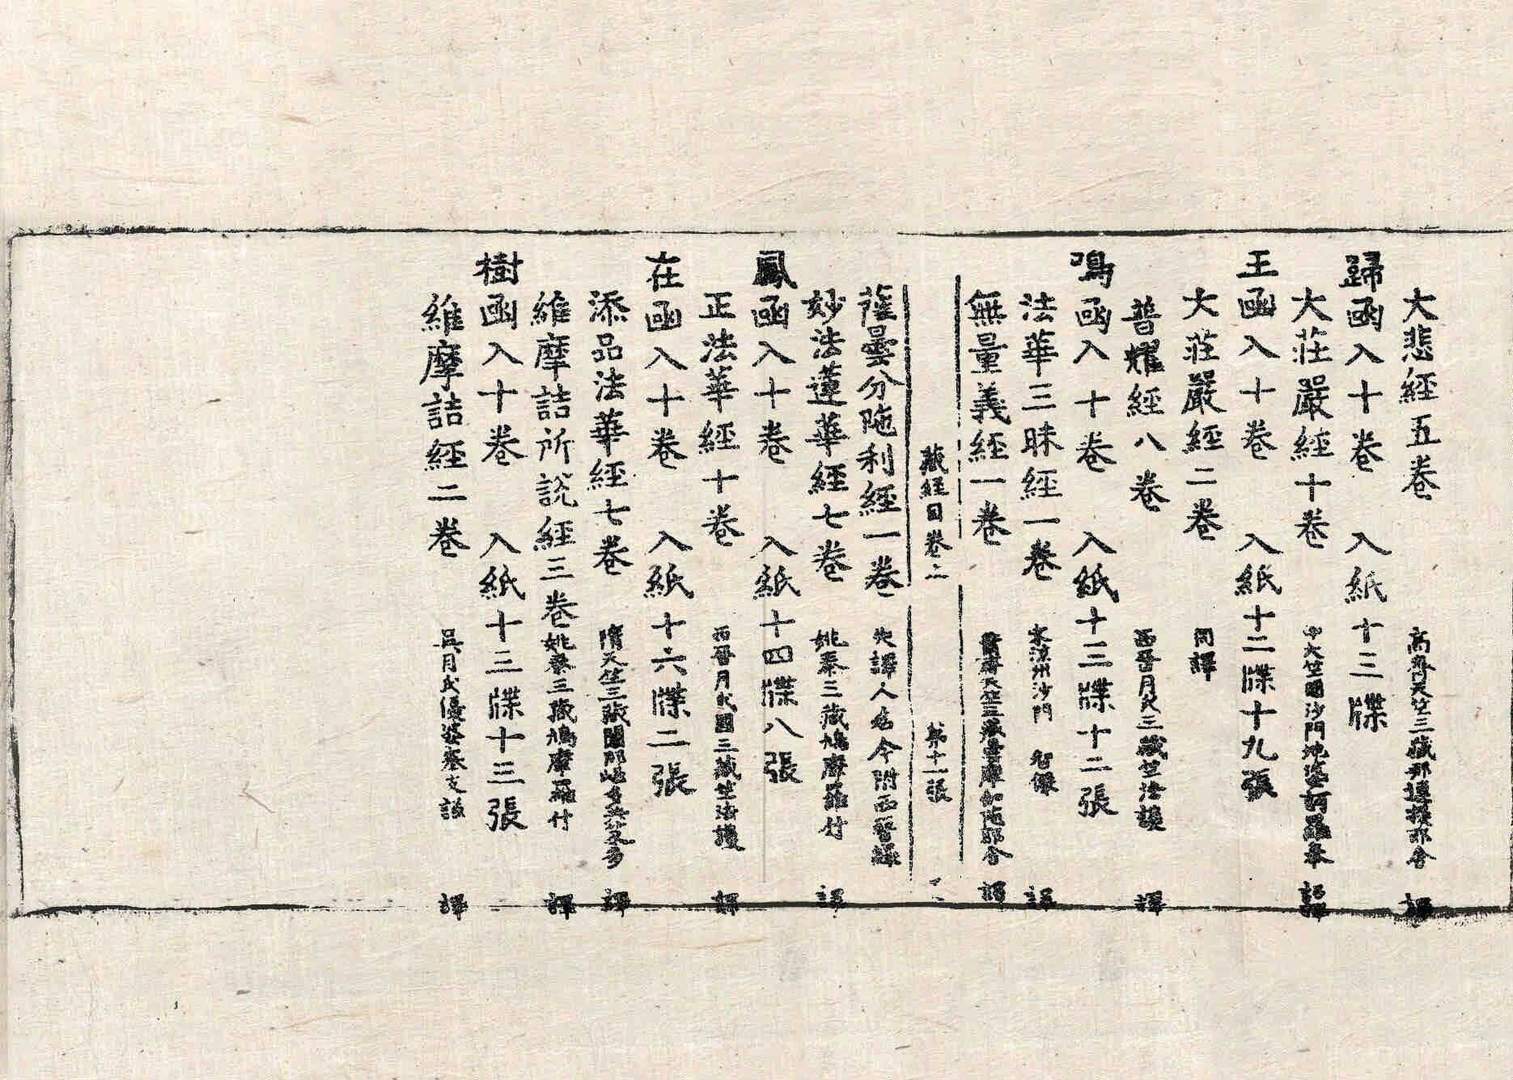 大悲經五卷 高齊天竺三藏那連提耶舍 譯
歸函入十卷 入紙十三牒
大莊嚴經十卷 中天竺國沙門地婆訶羅奉 詔譯
王函入十卷 入紙十二牒十九張
大莊嚴經二卷 同譯
普耀經八卷 西晉月氏三藏竺法護 譯
鳴函入十卷 入紙十三牒十二張
法華三昧經一卷 宋涼州沙門 智儼 譯
無量義經一卷 蕭齊天竺三藏曇摩伽陁耶舍 譯
藏經目卷二 第十一張
薩曇分陁利經一卷 失譯人名今附西晉錄
妙法蓮華經七卷 姚秦三藏鳩摩羅什 譯
鳳函入十卷 入紙十四牒八張
正法華經十卷 西晉月氏國三藏竺法護 譯
在函入十卷 入紙十六牒二張
添品法華經七卷 隋天竺三藏闍那崛多共笈多 譯
維摩詰所說經三卷 姚秦三藏鳩摩羅什 譯
樹函入十卷 入紙十三牒十三張
維摩詰經二卷 吳月氏優婆塞支謙 譯